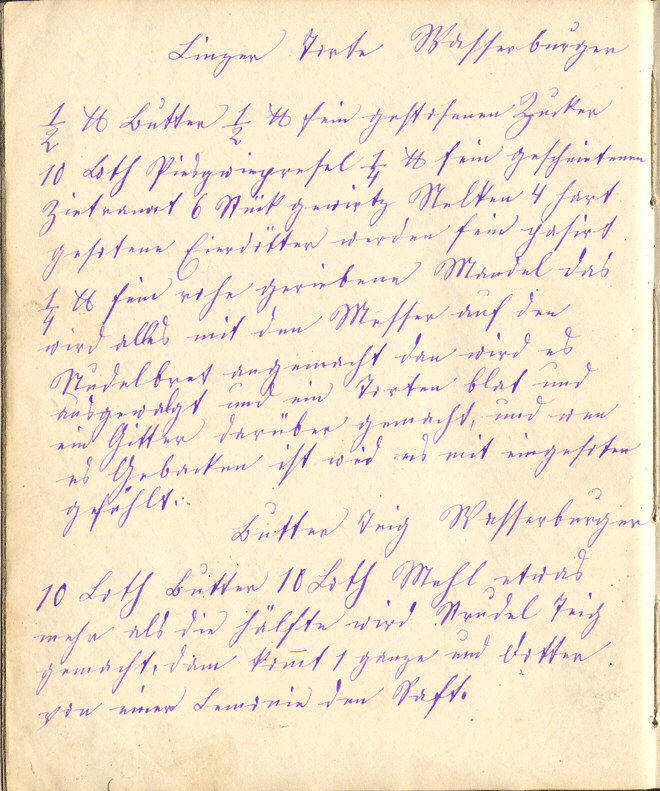 Linzer Torte Wasserburger
1/2 ℔ Butter 1/2 ℔ fein gestosenen Zucker
10 Loth 1/4 ℔ fein geschnietenen
Zietronat 6 Stük gewirtz Nelken 4 hart
gesotene Eierdötter werden fein pasirt
1/4 ℔ fein rohe geriebene Mandel das
wird alles mit den Messer auf den
Nudelbret angemacht dan wird es
ausgewalgt und ein Torten blat und
ein Gitter darüber gemacht, und wen
es Gebacken ist wird es mit eingesoten
geföhlt.
Butter Teig Wasserburger
10 Loth Butter 10 Loth Mehl etwas
mehr als die hälfte wird Strudel Teig
gemacht, dann kommt 1 ganze und Dotter
von einer Lemonie den Saft.